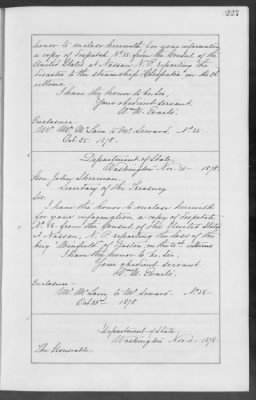 227
honor to enclose herewith for your information
a copy of despatch No. 25 from the Consul of the
United States at Nassau N.P. reporting the
disaster to the steamship Cleopatra on the 22
ultimo.
I have the honor to be, Sir,
Your obedient servant,
Wm. M. Evarts.
Enclosure.
Mr. McLain to Mr. Seward. No 25
Oct. 25. 1878.
Department of State,
Washington Nov. 11 1878.
Hon John Sherman,
Secretary of the Treasury
Sir:
I have the honor to enclose herewith
for your information, a copy of despatch
No. 26 from the Consul of the United States
at Nassau, N.P. reporting the loss of the
brig of Boston, on the 21st ultimo
I have the honor to be, Sir,
Your obedient servant,
Wm. M. Evarts.
Enclosure-
Mr. McLain to Mr. Seward No 26
Oct 25th 1878
Department of State,
Washington Nov. 11 1878.
The Honorable.